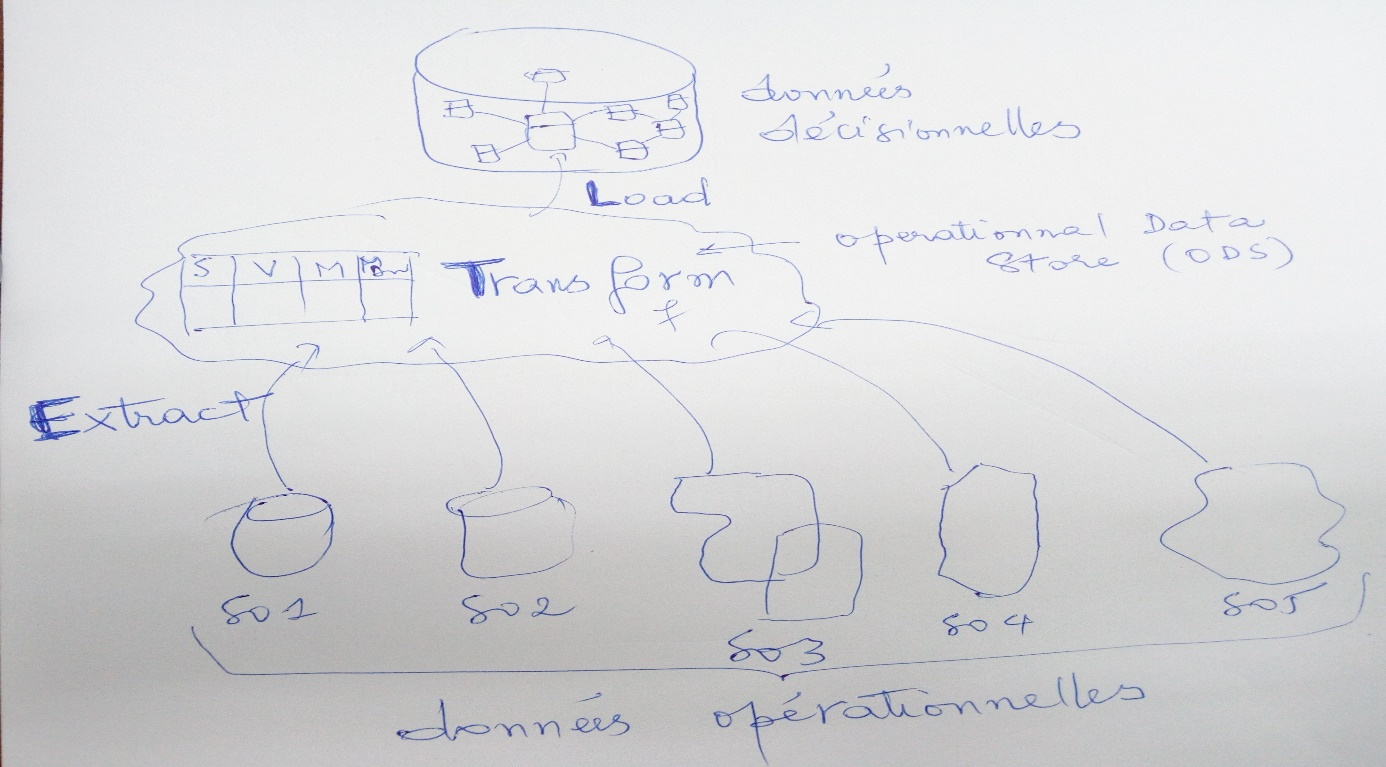 données
décisionnelles
Load
operationnal Data
Store (ODS)
S V M
Transform
f
Extract
SO1
SO2
SO3
SO4
SO5
données opérationnelles